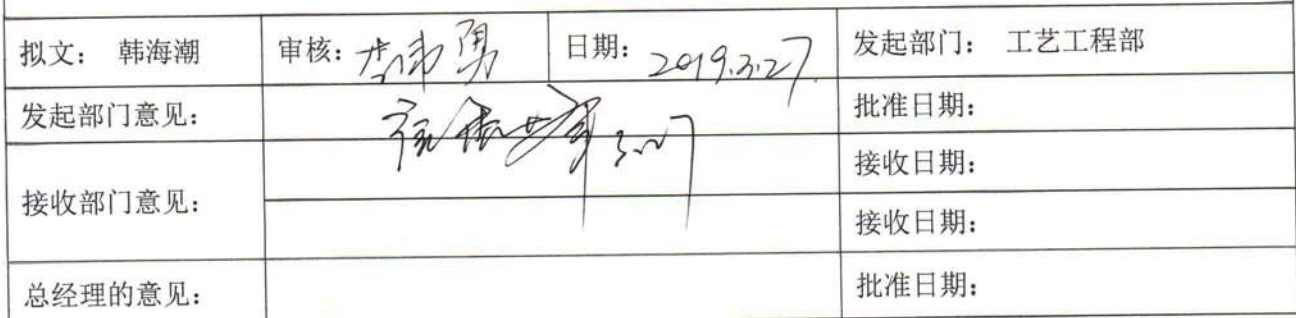 拟文： 韩海潮 审核：李伟勇 日期：2019.3.27. 发起部门： 工艺工程部
发起部门意见： 3.27 批准日期：
接收部门意见： 接收日期：
接收日期：
总经理的意见： 批准日期：